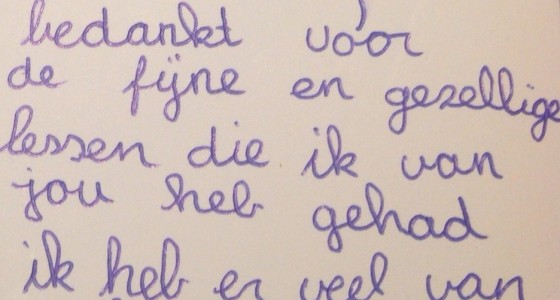 bedankt voor
de fijne en gezellige
lessen die ik van
jou heb gehad
ik heb er veel van